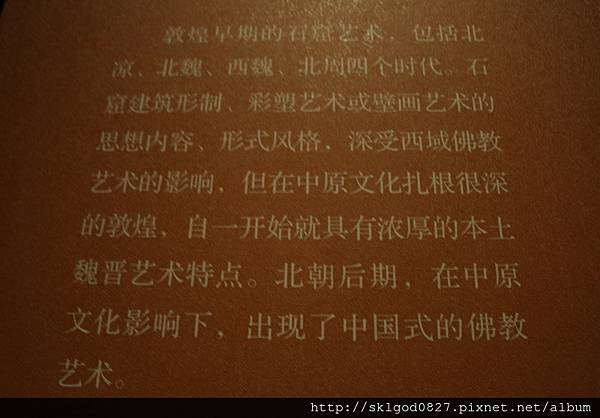 敦煌早期的石窟艺术，包括北
凉、北魏、西魏、北周四个时代。石
窟建筑形制、彩塑艺术或壁画艺术的
思想内容、形式风格，深受西域佛教
艺术的影响，但在中原文化扎根很深
的敦煌，自一开始就具有浓厚的本土
魏晋艺术特点。北朝后期，在中原
文化影响下，出现了中国式的佛教
艺术。
http://sklgod0827.pixnet.net/album